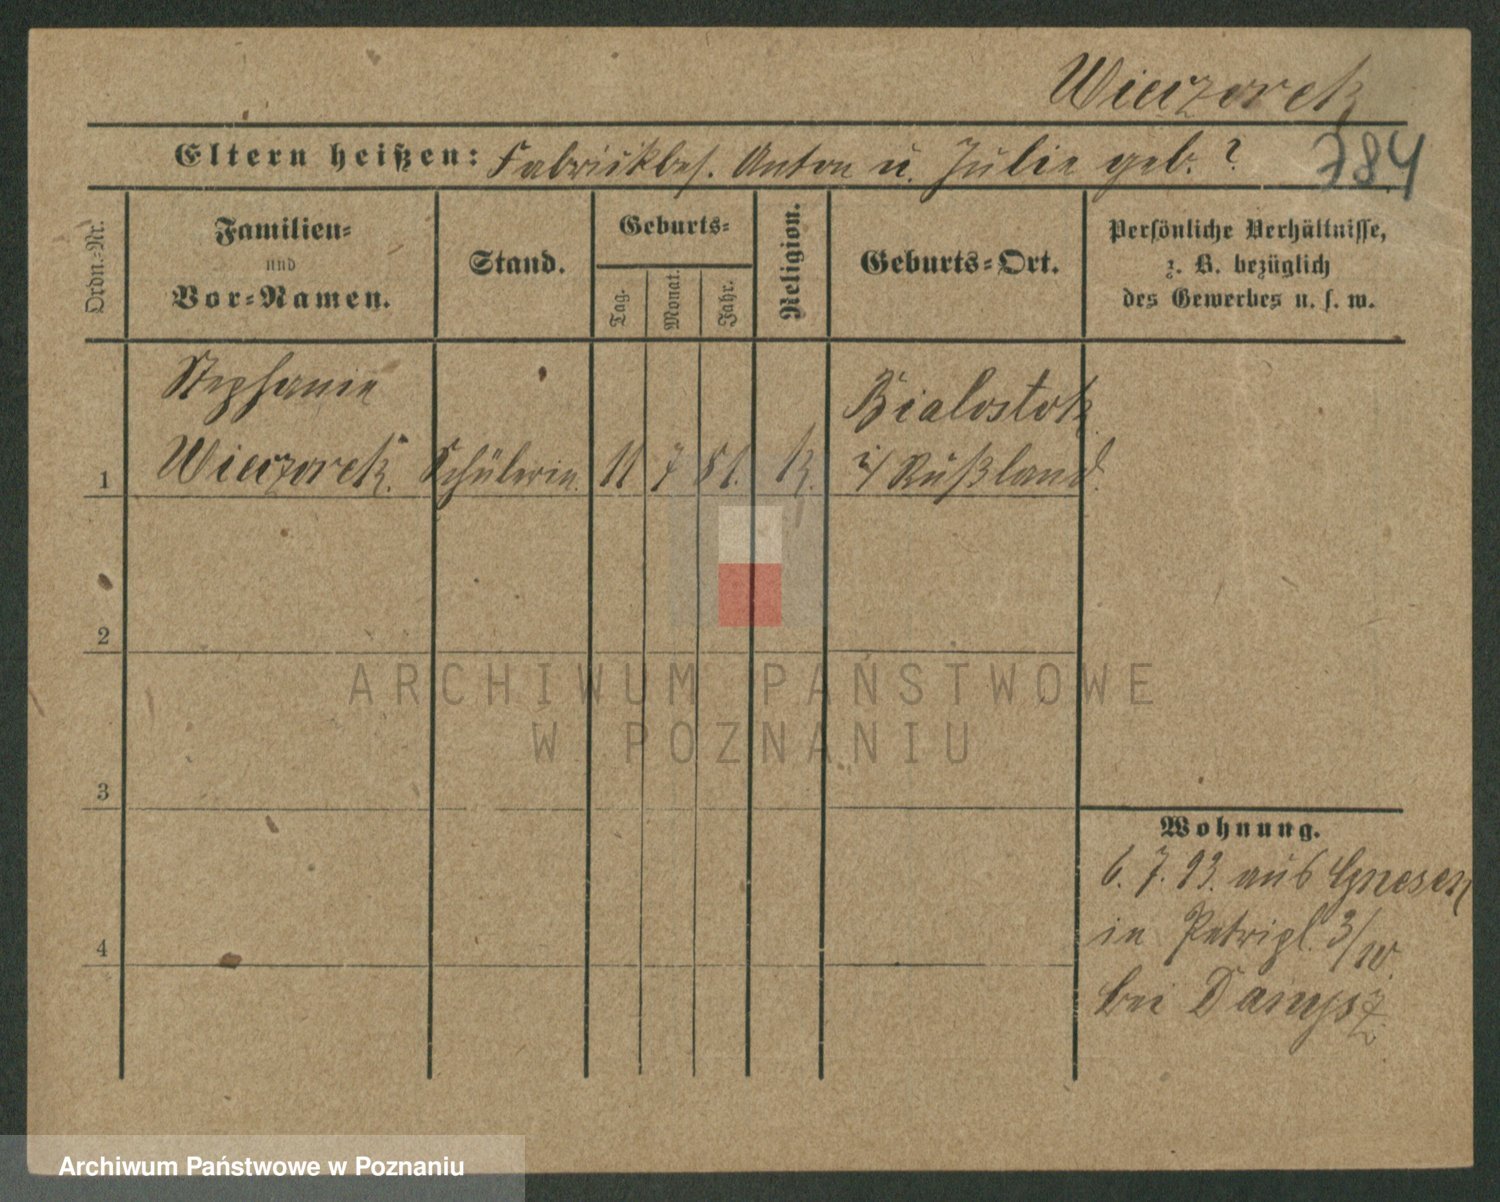 Wieczorek
Eltern heißen: Fabrikbes. Anton u. Julie geb. ? 784
Ordn.-Nr.
Familien-
und
Vor-Namen.
Stand.
Geburts-
Tag.
Monat.
Jahr.
Religion.
Geburts-Ort.
Persönliche Verhältnisse,
z. B. bezüglich
des Gewerbes u. s. w.
Stephanie Bialostok
1 Wieczorek. Schülerin. 11 7 81. k. i/ Rußland.
2
ARCHIWUM PAŃSTWOWE
W POZNANIU
3
Wohnung.
6. 7. 93. aus Gnesen
in Petripl. 3/IV.
4
bei
Archiwum Państwowe w Poznaniu